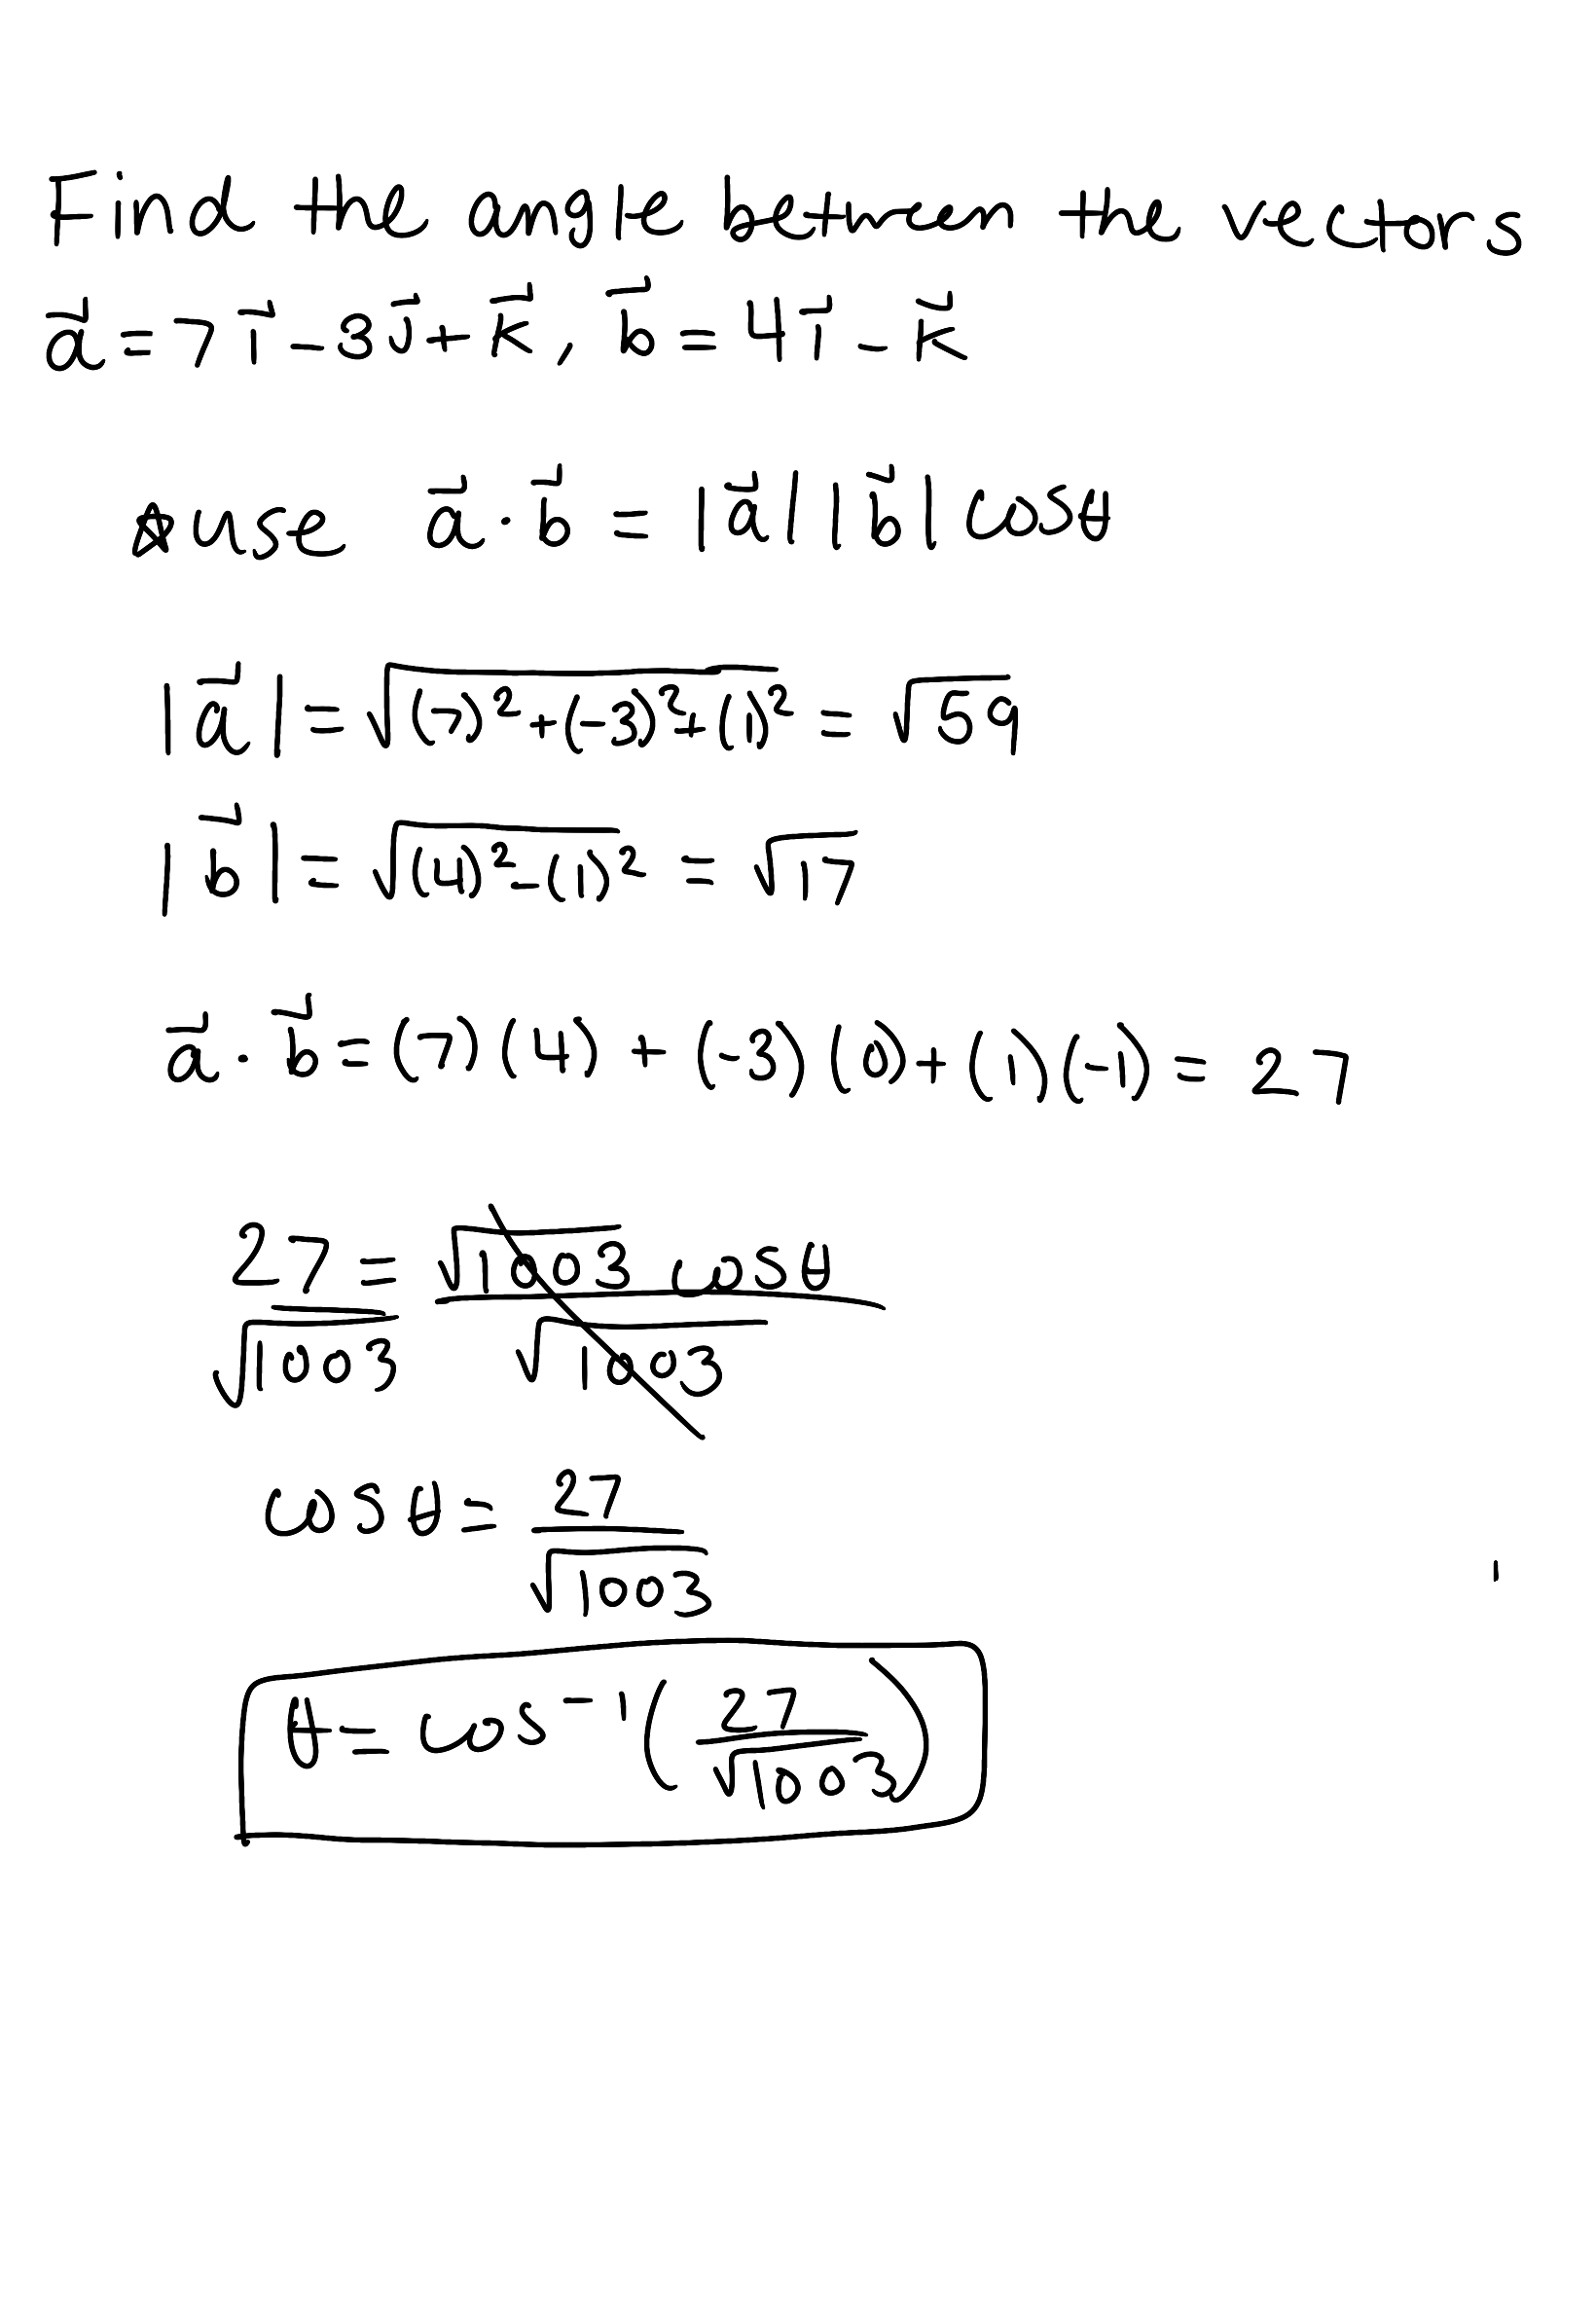 Find the angle between the vectors
a⃗ = 7i⃗ - 3j⃗ + k⃗, b⃗ = 4i⃗ - k⃗
☆ use a⃗ · b⃗ = |a⃗| |b⃗| cosθ
|a⃗| = √((7)² + (-3)² + (1)²) = √59
|b⃗| = √((4)² - (1)²) = √17
a⃗ · b⃗ = (7)(4) + (-3)(0) + (1)(-1) = 27
27/√1003 = √1003 cosθ/√1003
cosθ = 27/√1003
θ = cos⁻¹(27/√1003)